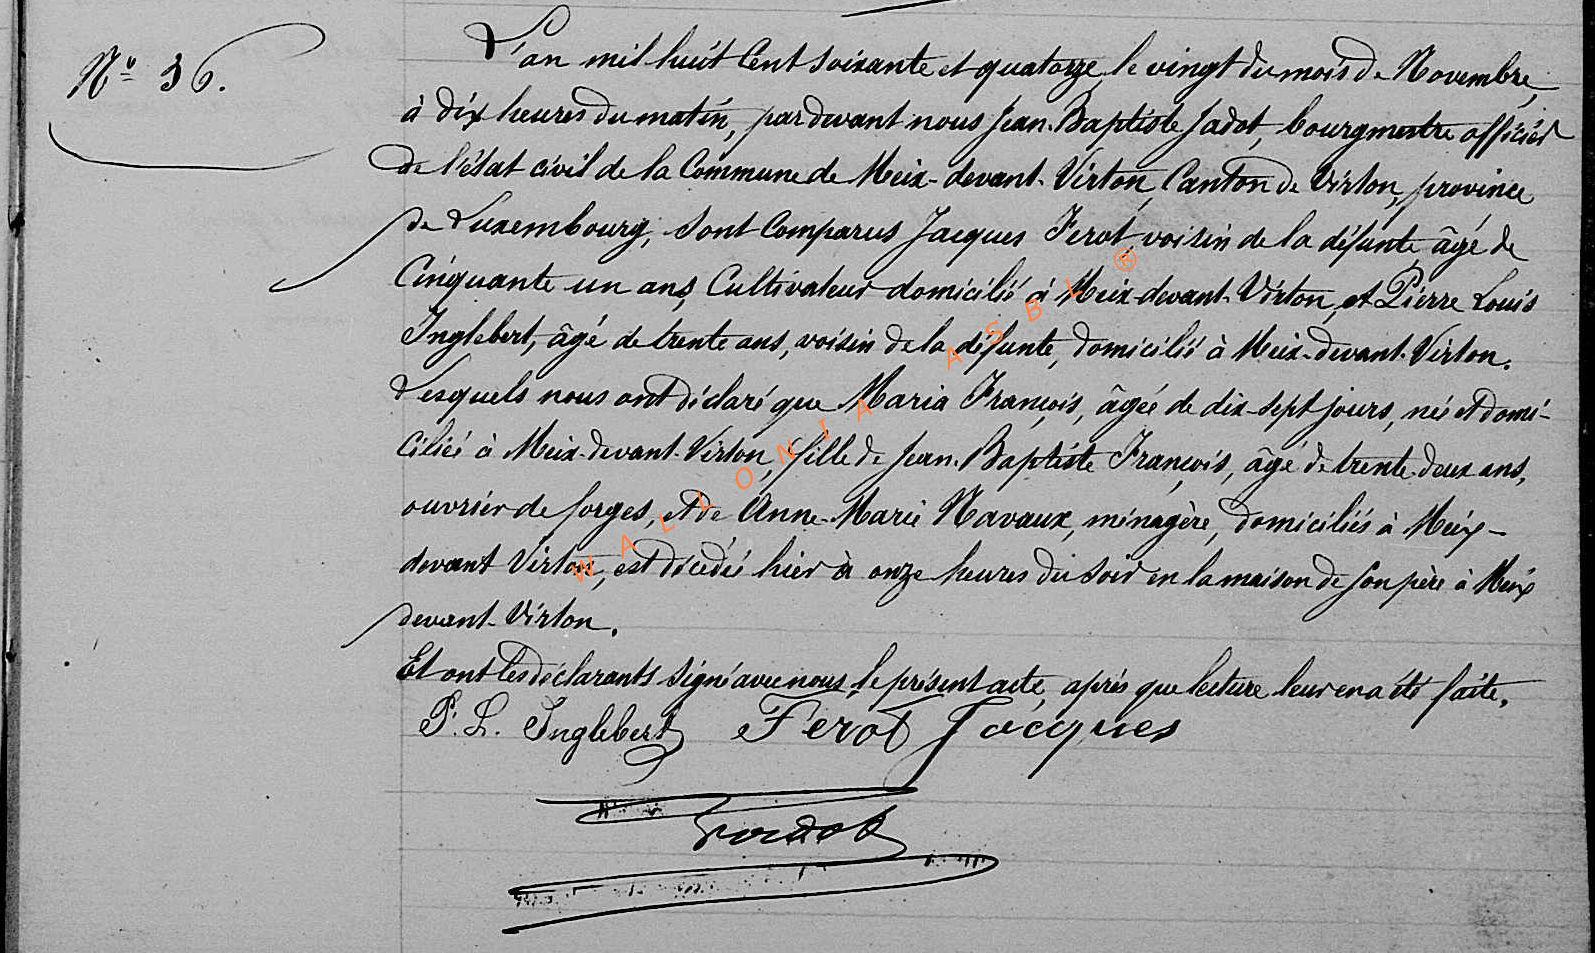 Nº 36.
L'an mil huit Cent soixante et quatorze, le vingt du mois de Novembre,
à dix heures du matin, pardevant nous Jean-Baptiste Jadot, bourgmestre officier
de l'état civil de la Commune de Meix-devant-Virton, Canton de Virton, province
de Luxembourg, sont Comparus Jacques Ferot, voisin de la défunte, âgé de
Cinquante un ans, Cultivateur domicilié à Meix-devant-Virton, et Pierre Louis
Inglebert, âgé de trente ans, voisin de la défunte, domicilié à Meix-devant-Virton.
Lesquels nous ont déclaré que Maria François, âgée de dix-sept jours, née et domi-
ciliée à Meix-devant-Virton, fille de Jean-Baptiste François, âgé de trente-deux ans,
ouvrier de forges, et de Anne-Marie Navaux, ménagère, domiciliés à Meix-
devant Virton, est décédée hier à onze heures du soir en la maison de son père à Meix
devant-Virton.
Et ont les déclarants signé avec nous le présent acte, après que lecture leur en a été faite.
P. L. Inglebert Ferot Jacques
Jadot
WALLONIA ASBL ®